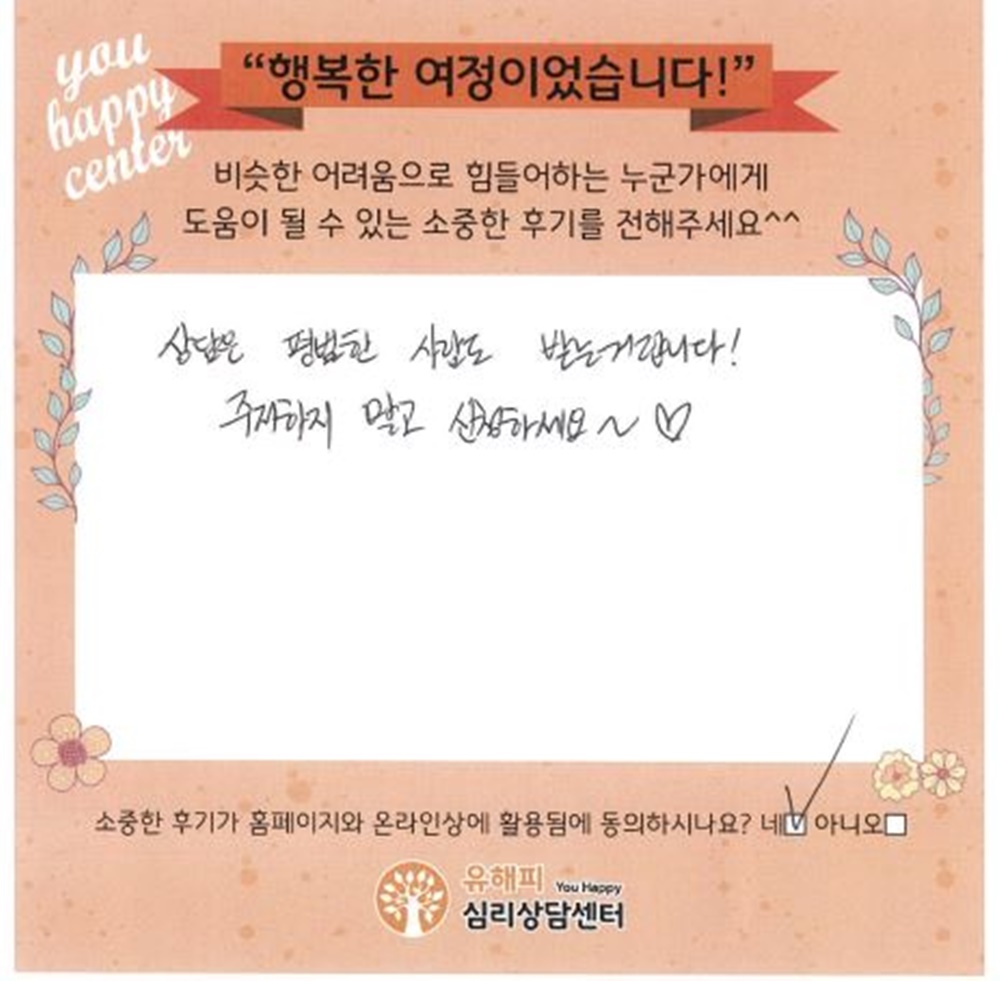 you
happy
center
“행복한 여정이었습니다!”
비슷한 어려움으로 힘들어하는 누군가에게
도움이 될 수 있는 소중한 후기를 전해주세요^^
상담은 평범한 사람도 받는거랍니다!
주저하지 말고 신청하세요~♡
소중한 후기가 홈페이지와 온라인상에 활용됨에 동의하시나요? 네☑ 아니오☐
유해피 You Happy
심리상담센터